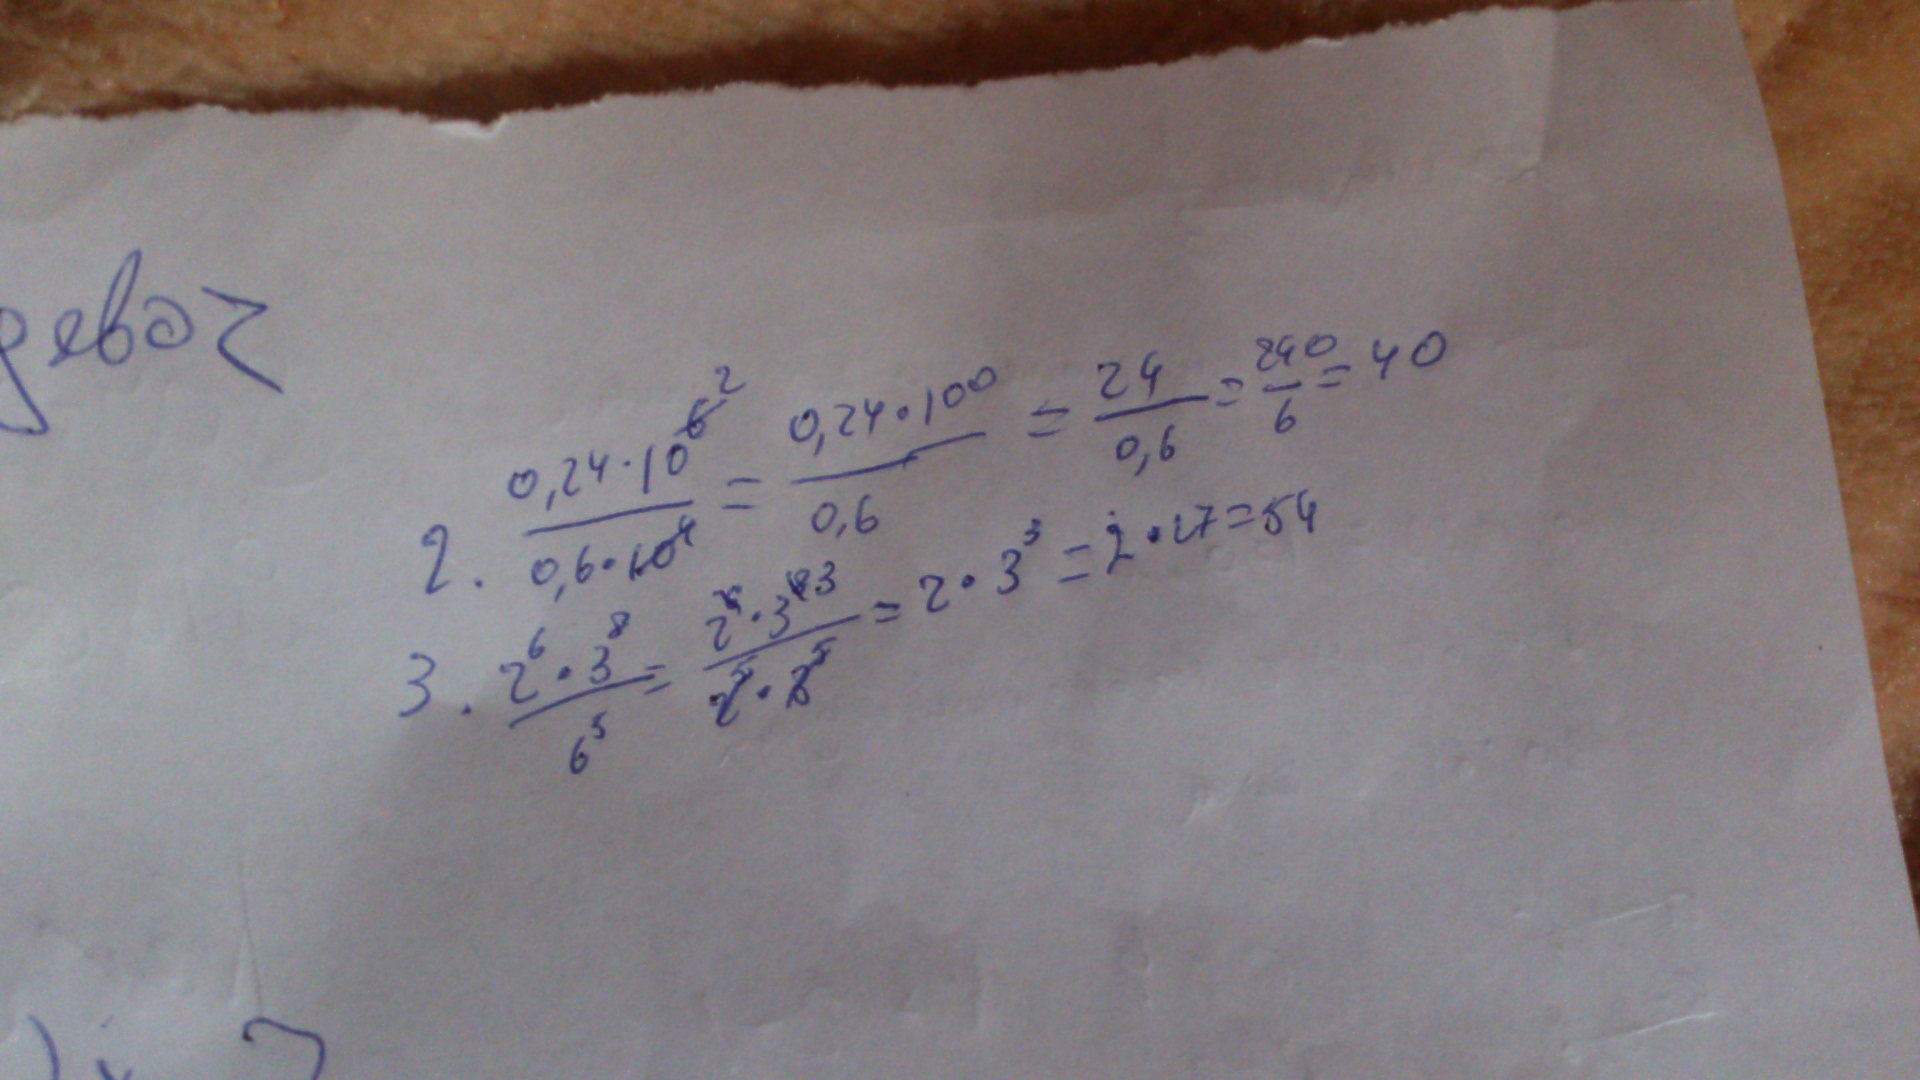 девог
2. 0,24·10⁶ ² / 0,6·10⁴ = 0,24·100 / 0,6 = 24 / 0,6 = 240 / 6 = 40
3. 2⁶·3⁸ / 6⁵ = 2⁶·3⁸ ³ / 2⁵·3⁵ = 2·3³ = 2·27 = 54